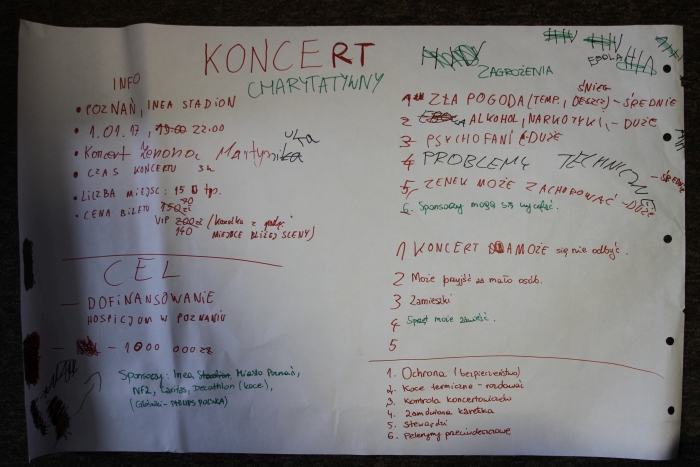 KONCERT
CHARYTATYWNY
INFO
• POZNAŃ, INEA STADION
• 1.01.17, 22:00
• Koncert Zenona Martyniuka
• CZAS KONCERTU 3h
• LICZBA MIEJSC: 15 tyś.
• CENA BILETU 70
VIP 140 (Karetka z
MIEJSCE BLIŻEJ SCENY)
CEL
— DOFINANSOWANIE
HOSPICJUM W POZNANIU
— 1000 000 zł
Sponsorzy: Inea Stadion, Miasto Poznań,
NFZ, Caritas, Decathlon (koce),
(Główni - PHILIPS POLSKA)
EBOLA
ZAGROŻENIA
ŚNIEG
1 ZŁA POGODA (TEMP., DESZCZ) - ŚREDNIE
2 ALKOHOL, NARKOTYKI, - DUŻE
3 PSYCHOFANI - DUŻE
4 PROBLEMY TECHNICZNE - ŚREDNIE
5 ZENEK MOŻE ZACHOROWAĆ - DUŻE
6. Sponsorzy mogą się wycofać.
1 KONCERT MOŻE się nie odbyć.
2 Może przyjść za mało osób.
3 Zamieszki
4 Sprzęt może zawieść.
5
1. Ochrona (bezpieczeństwo)
2. Koce termiczne - rozdawać
3. Kontrola koncertowiczów
4. Zamówiona karetka
5. Stewardzi
6. Peleryny przeciwdeszczowe